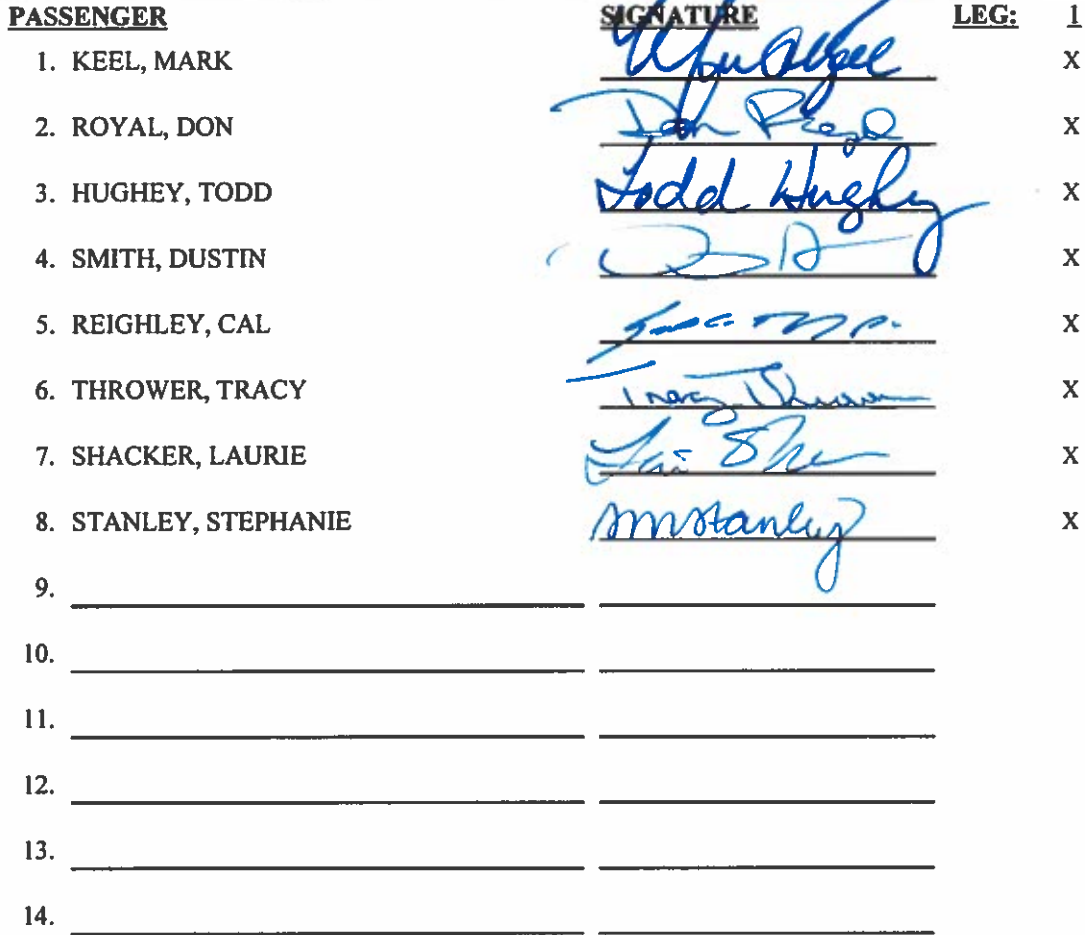 PASSENGER SIGNATURE LEG: 1
1. KEEL, MARK X
2. ROYAL, DON Don X
3. HUGHEY, TODD Todd Hughey X
4. SMITH, DUSTIN X
5. REIGHLEY, CAL X
6. THROWER, TRACY Tracy Thrower X
7. SHACKER, LAURIE X
8. STANLEY, STEPHANIE SMStanley X
9.
10.
11.
12.
13.
14.